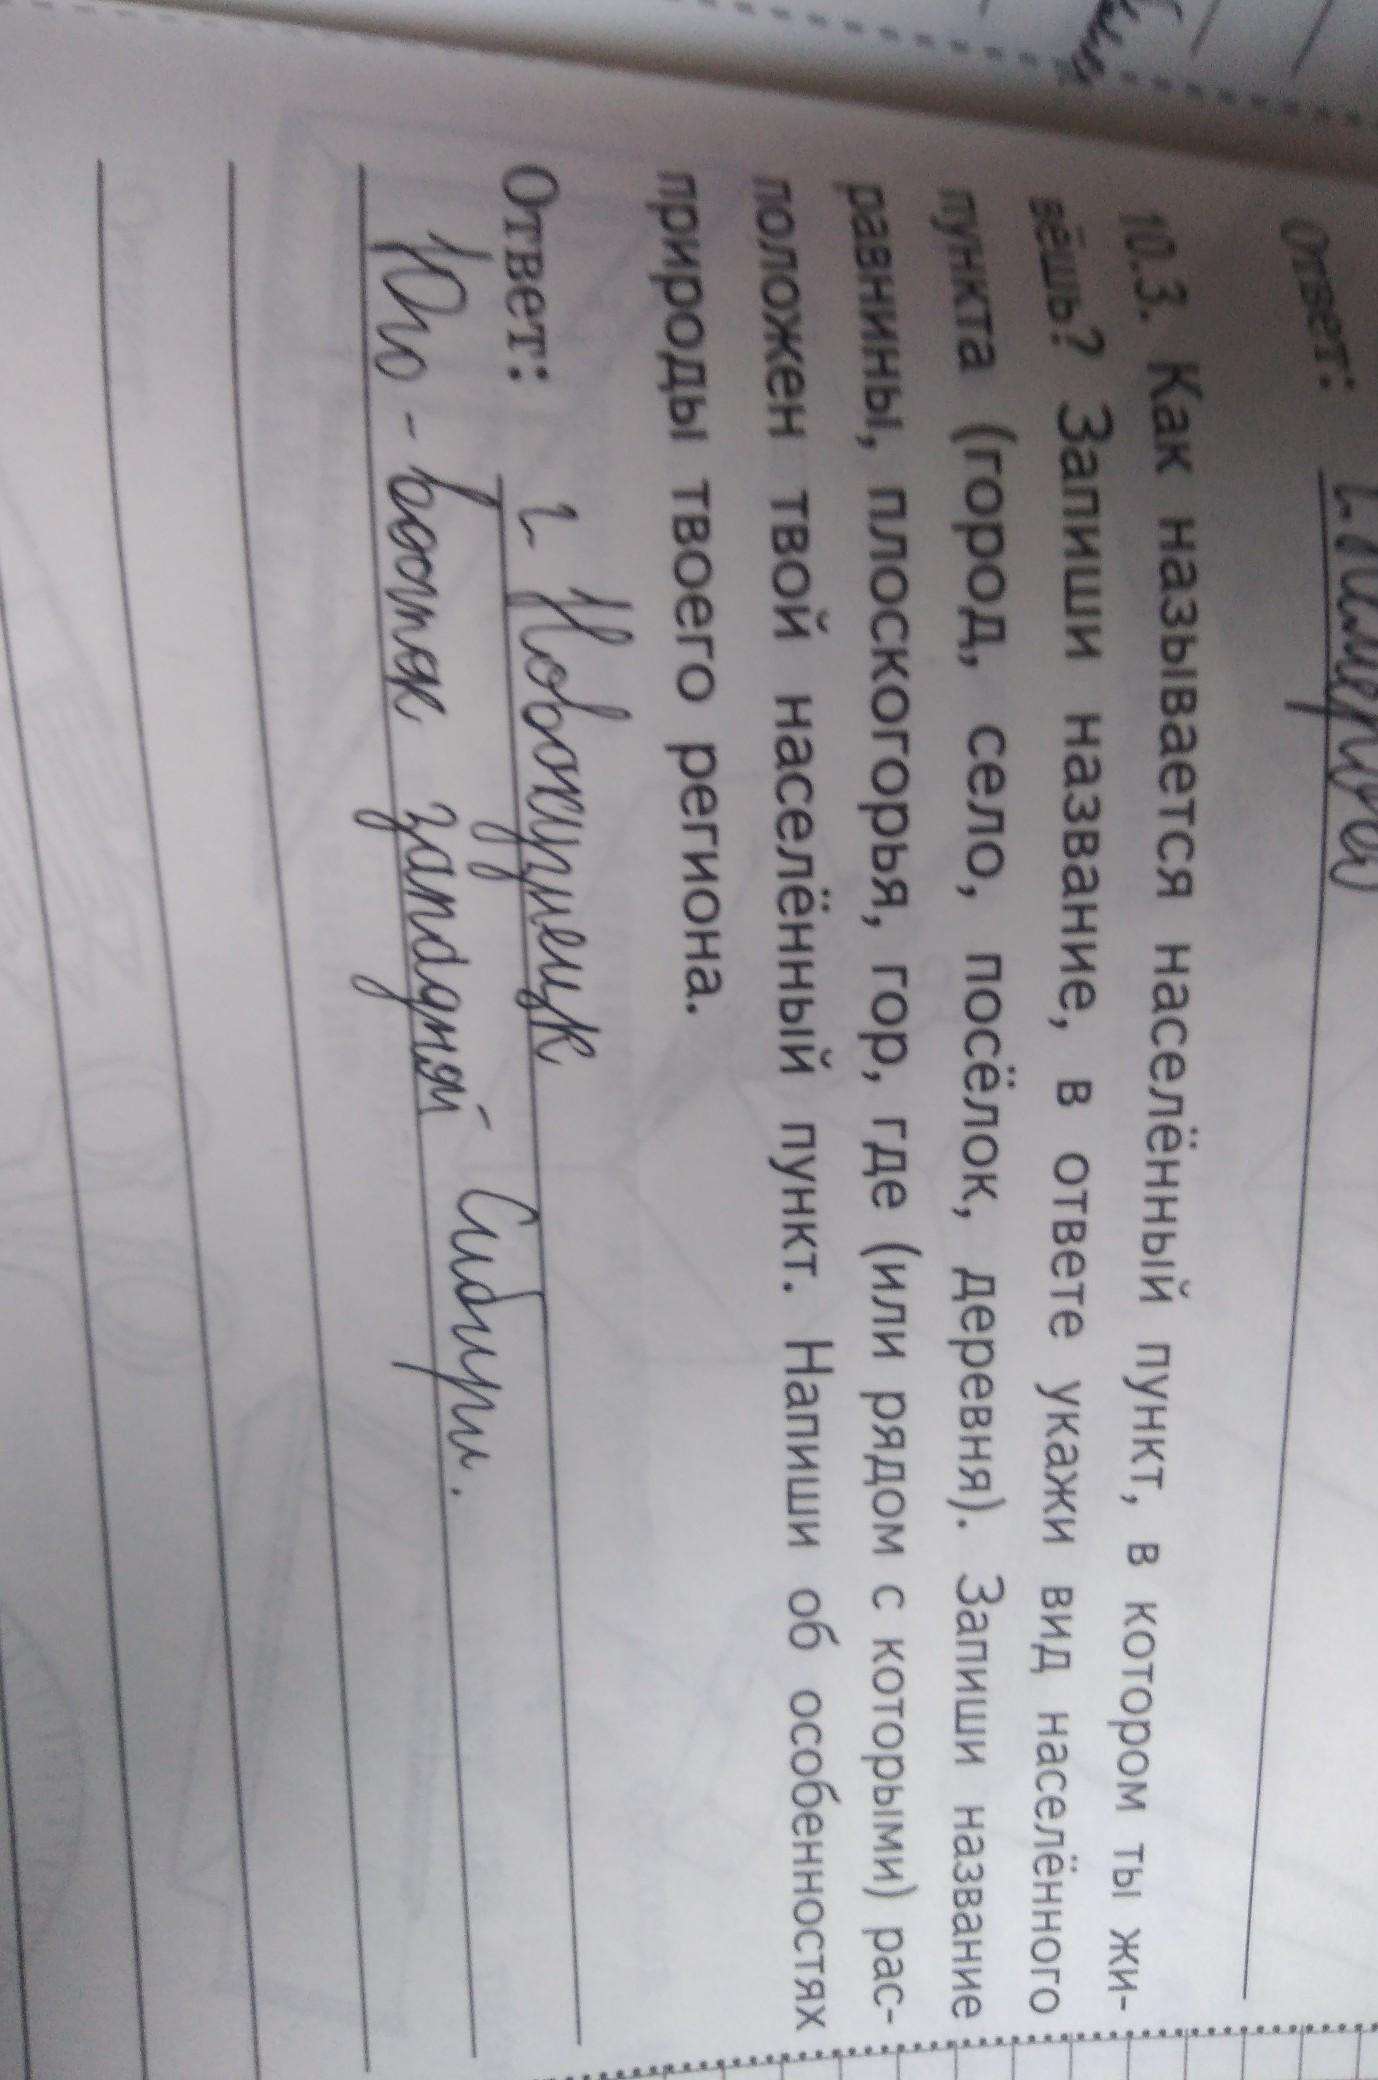 Ответ:
10.3. Как называется населённый пункт, в котором ты жи-
вёшь? Запиши название, в ответе укажи вид населённого
пункта (город, село, посёлок, деревня). Запиши название
равнины, плоскогорья, гор, где (или рядом с которыми) рас-
положен твой населённый пункт. Напиши об особенностях
природы твоего региона.
Ответ: г. Новокузнецк
Юго-восток западной Сибири.